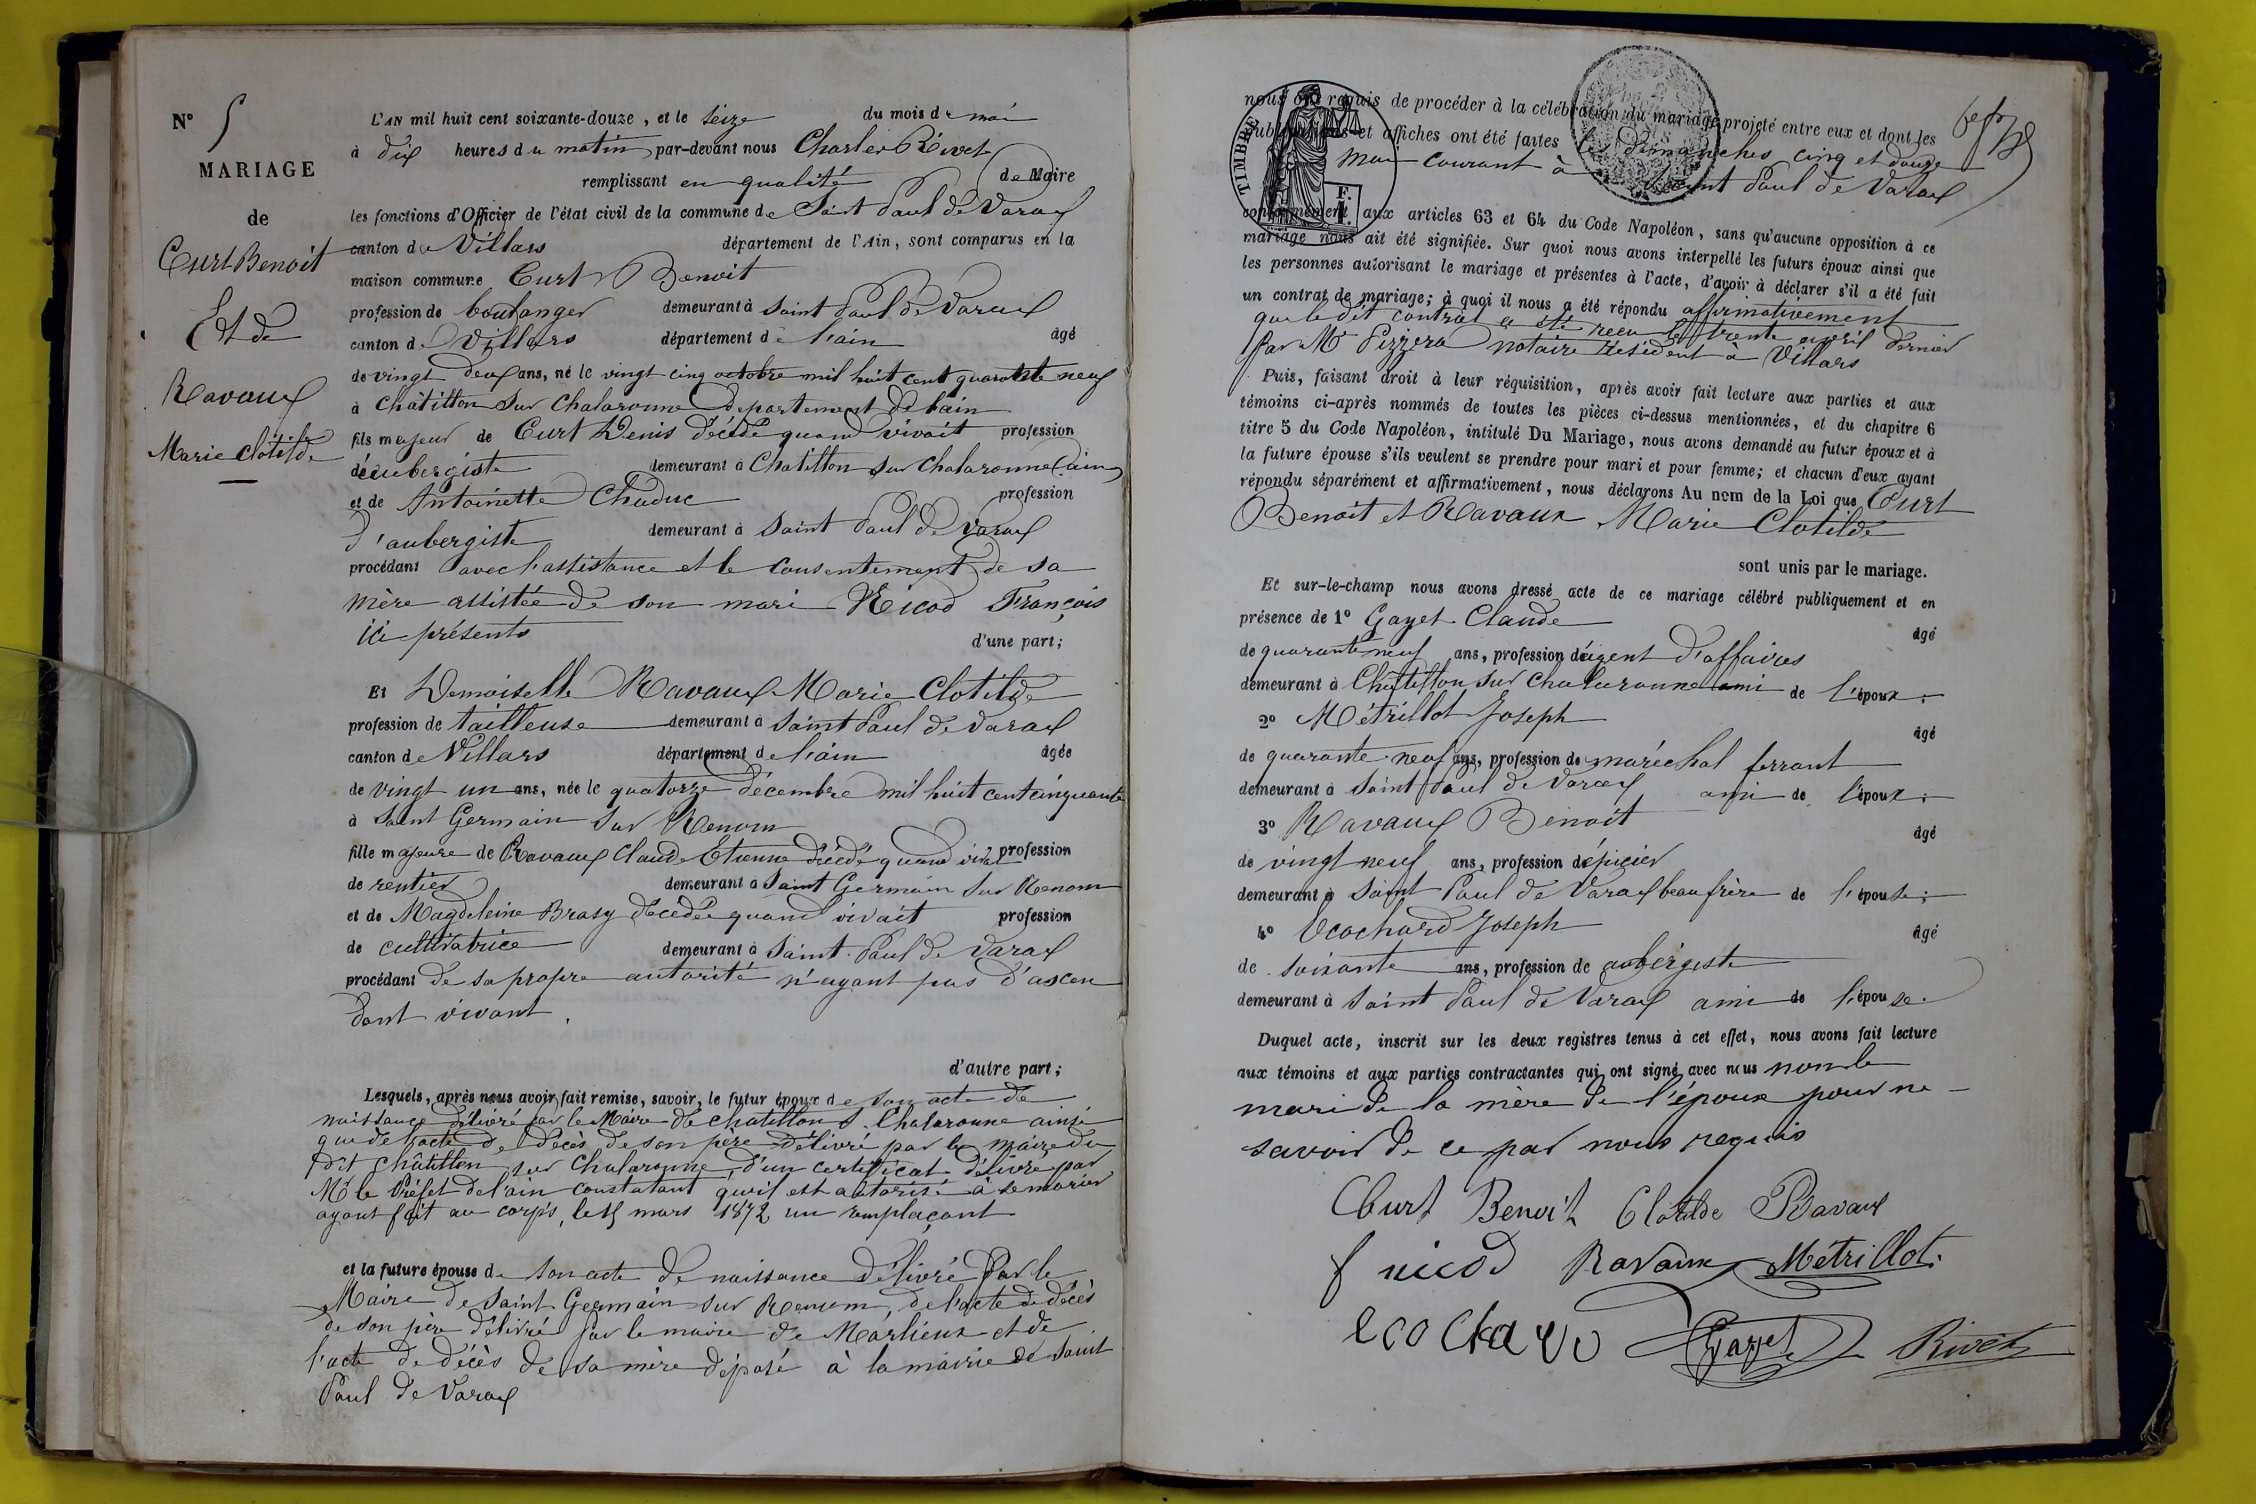 N° 5
MARIAGE
de
Curt Benoit
Et de
Ravaux
Marie Clotilde
L'AN mil huit cent soixante-douze, et le seize du mois de mai
à dix heures du matin par-devant nous Charles Rivet
remplissant en qualité de Maire
les fonctions d'Officier de l'état civil de la commune de Saint Paul de Varax
canton de Villars département de l'Ain, sont comparus en la
maison commune Curt Benoit
profession de boulanger demeurant à Saint Paul de Varax
canton de Villars département de l'ain âgé
de vingt deux ans, né le vingt cinq octobre mil huit cent quarante neuf
à Chatillon sur Chalaronne département de l'ain
fils majeur de Curt Denis décédé quand vivait profession
d'aubergiste demeurant à Chatillon sur Chalaronne (ain)
et de Antoinette Chaduc profession
d'aubergiste demeurant à Saint Paul de Varax
procédant avec l'assistance et le consentement de sa
mère assistée de son mari Nicod François
ici présents
d'une part;
Et Demoiselle Ravaux Marie Clotilde
profession de tailleuse demeurant à Saint Paul de Varax
canton de Villars département de l'ain âgée
de vingt un ans, née le quatorze décembre mil huit cent cinquante
à Saint Germain sur Renom
fille majeure de Ravaux Claude Etienne décédé quand vivait profession
de rentier demeurant à Saint Germain sur Renom
et de Magdeleine Brasy décédée quand vivait profession
de cultivatrice demeurant à Saint Paul de Varax
procédant de sa propre autorité n'ayant pas d'ascen
dant vivant.
d'autre part;
Lesquels, après nous avoir fait remise, savoir, le futur époux de son acte de
naissance délivré par le Maire de Chatillon s. Chalaronne ainsi
que de l'acte de décès de son père délivré par le maire du
dit Châtillon sur Chalaronne, d'un certificat délivré par
Mr le Préfet de l'ain constatant qu'il est autorisé à se marier
ayant fait au corps, le 15 mars 1872 un remplaçant
et la future épouse de son acte de naissance délivré Par le
Maire de Saint Germain sur Renom, de l'acte de décès
de son père délivré par le maire de Marlieux et de
l'acte de décès de sa mère déposé à la mairie de Saint
Paul de Varax
nous ont requis de procéder à la célébration du mariage projeté entre eux et dont les
publications et affiches ont été faites les dimanches cinq et douze
Mai courant à Saint Paul de Varax
TIMBRE
conformément aux articles 63 et 64 du Code Napoléon, sans qu'aucune opposition à ce
mariage nous ait été signifiée. Sur quoi nous avons interpellé les futurs époux ainsi que
les personnes autorisant le mariage et présentes à l'acte, d'avoir à déclarer s'il a été fait
un contrat de mariage; à quoi il nous a été répondu affirmativement
que le dit contrat a été reçu le trente avril dernier
par Mr Pizzera notaire résident à Villars
Puis, faisant droit à leur réquisition, après avoir fait lecture aux parties et aux
témoins ci-après nommés de toutes les pièces ci-dessus mentionnées, et du chapitre 6
titre 5 du Code Napoléon, intitulé Du Mariage, nous avons demandé au futur époux et à
la future épouse s'ils veulent se prendre pour mari et pour femme; et chacun d'eux ayant
répondu séparément et affirmativement, nous déclarons Au nom de la Loi que Curt
Benoit et Ravaux Marie Clotilde
sont unis par le mariage.
Et sur-le-champ nous avons dressé acte de ce mariage célébré publiquement et en
présence de 1° Gayet Claude âgé
de quarante neuf ans, profession d'agent d'affaires
demeurant à Châtillon sur Chalaronne ami de l'époux;
2° Métrillot Joseph âgé
de quarante neuf ans, profession de maréchal ferrant
demeurant à Saint Paul de Varax ami de l'époux;
3° Ravaux Benoit âgé
de vingt neuf ans, profession d'épicier
demeurant à Saint Paul de Varax beau frère de l'épouse;
4° Ecochard Joseph âgé
de soixante ans, profession de aubergiste
demeurant à Saint Paul de Varax ami de l'épouse.
Duquel acte, inscrit sur les deux registres tenus à cet effet, nous avons fait lecture
aux témoins et aux parties contractantes qui ont signé avec nous non le
mari de la mère de l'époux pour ne
savoir de ce par nous requis
Curt Benoit Clotilde Ravaux
f nicod Ravaux Métrillot
ecochard Gayet Rivet